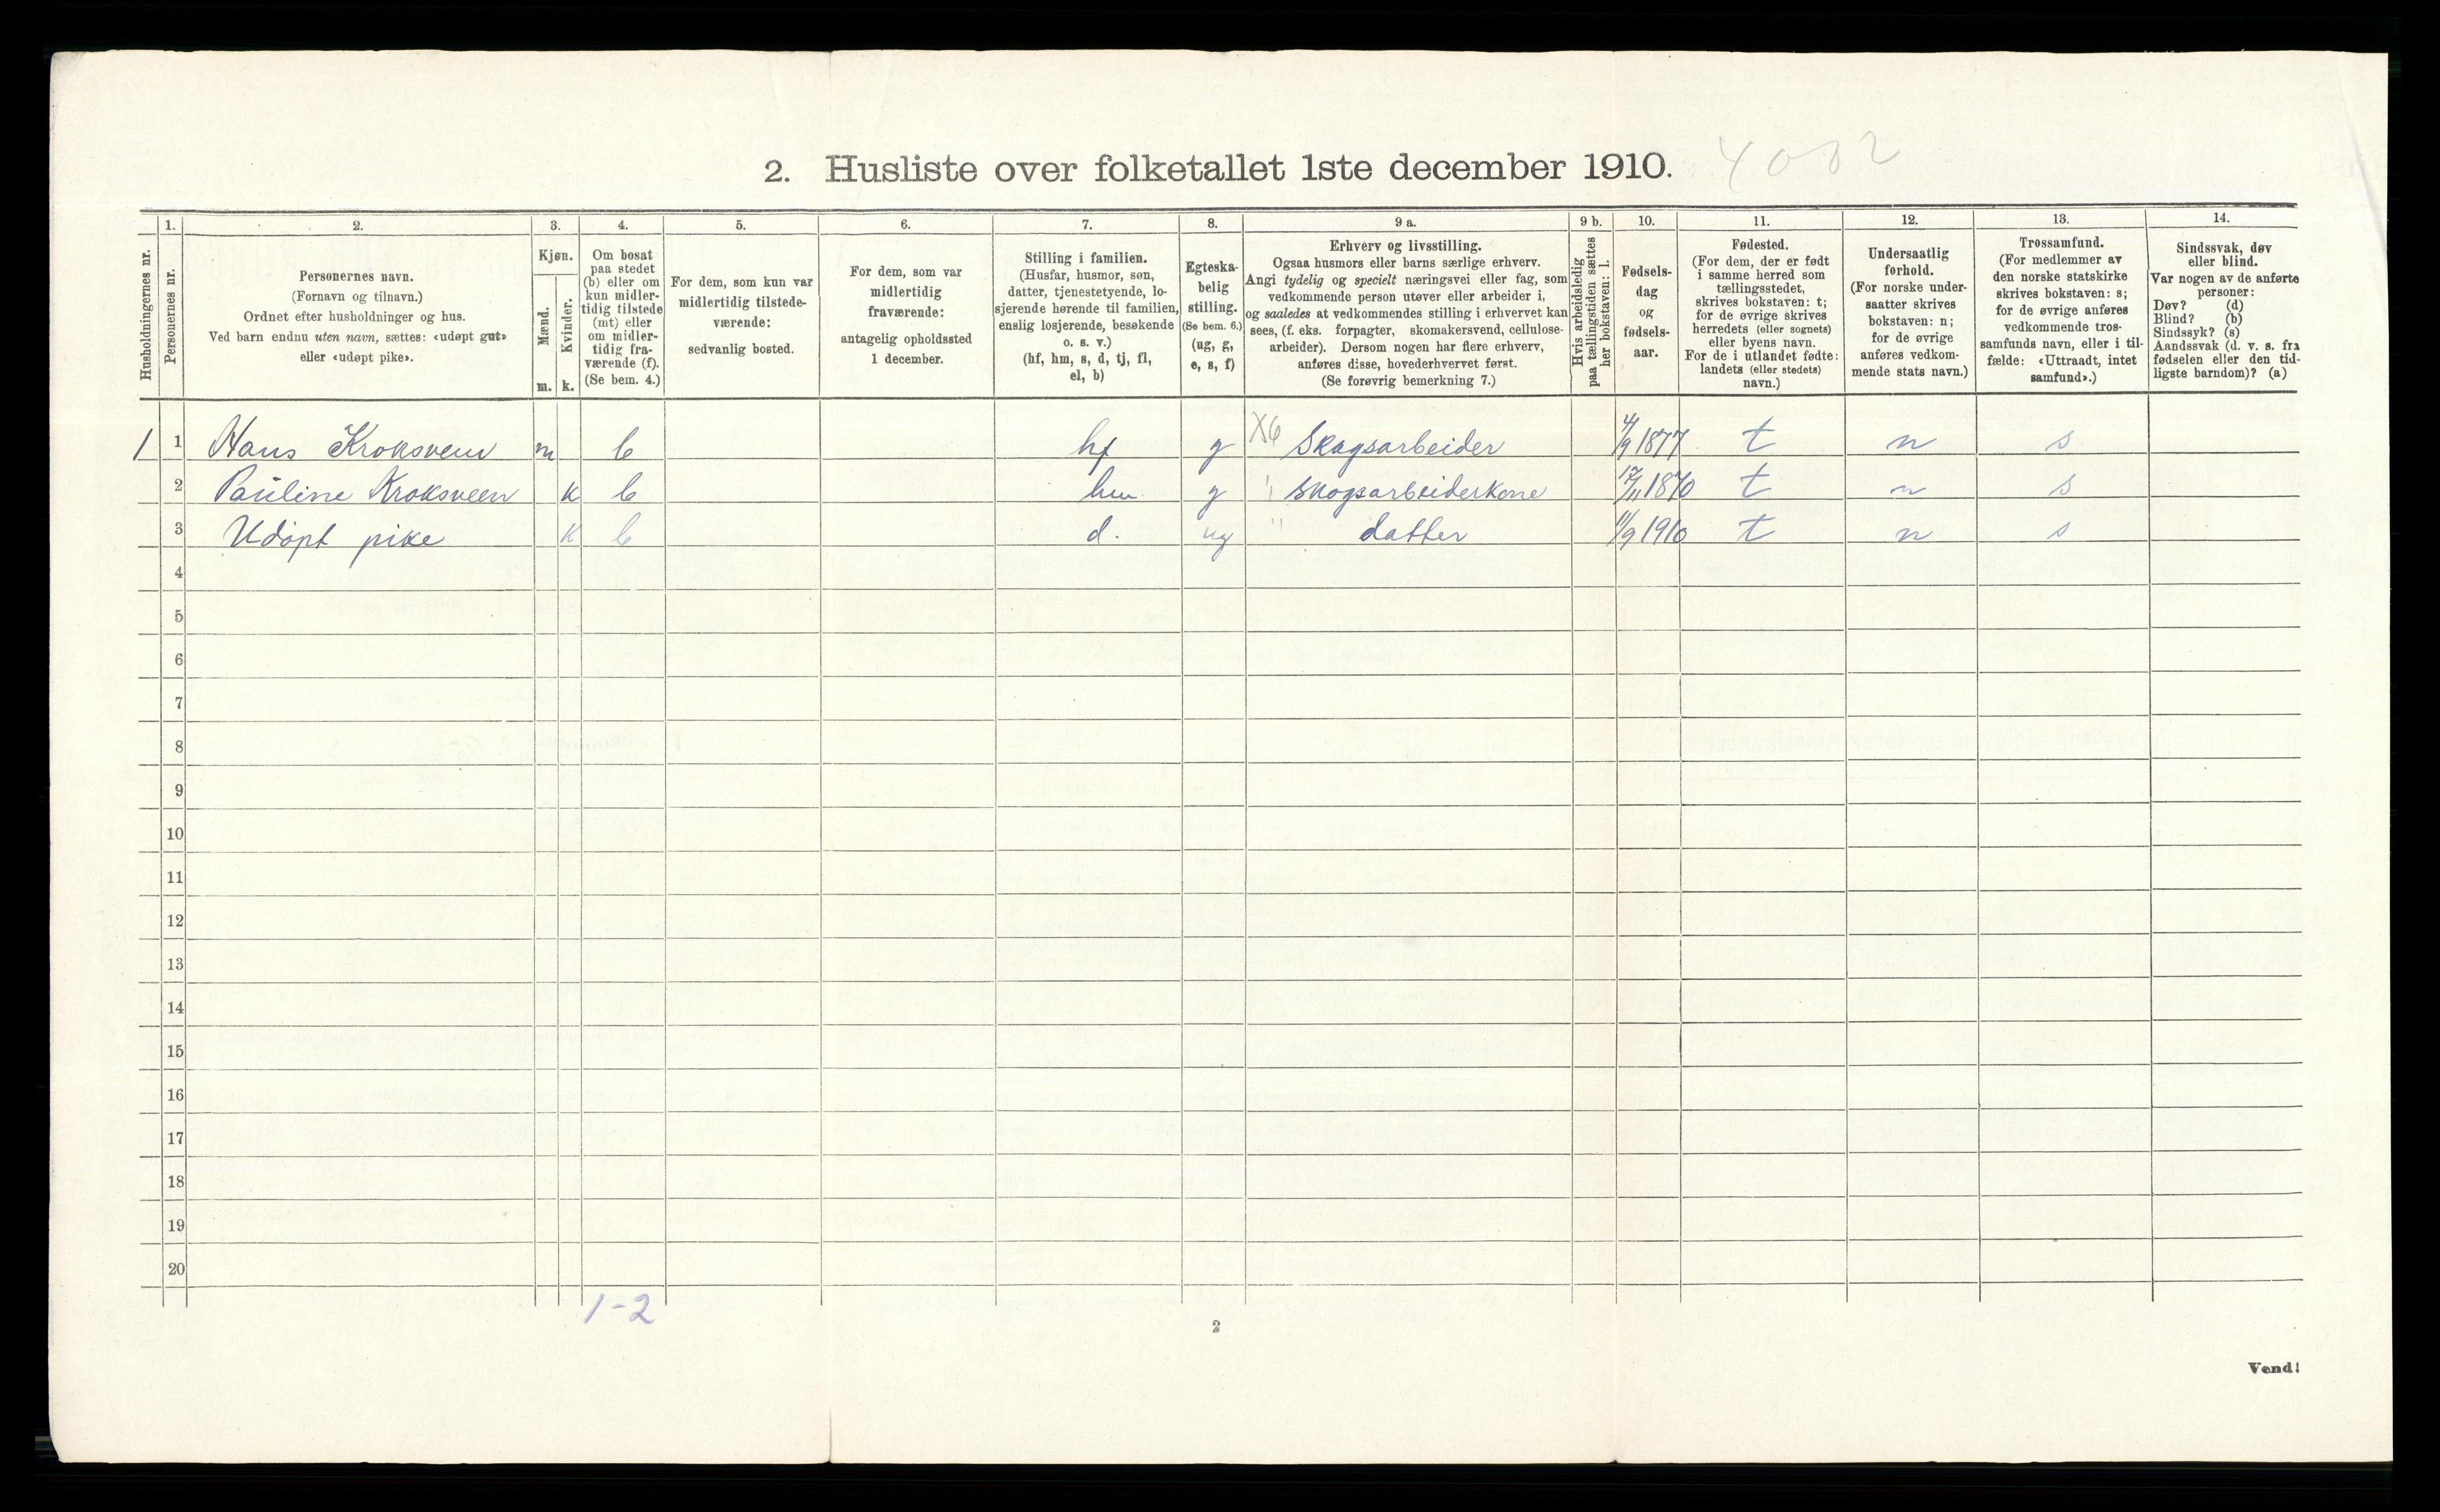 2. Husliste over folketallet 1ste december 1910.
1. 2. 3. 4. 5. 6. 7. 8. 9 a. 9 b. 10. 11. 12. 13. 14.
Husholdningernes nr.
Personernes nr.
Personernes navn.
(Fornavn og tilnavn.)
Ordnet efter husholdninger og hus.
Ved barn endnu uten navn, sættes: «udøpt gut»
eller «udøpt pike».
Kjøn.
Mænd.
Kvinder.
m. k.
Om bosat
paa stedet
(b) eller om
kun midler-
tidig tilstede
(mt) eller
om midler-
tidig fra-
værende (f).
(Se bem. 4.)
For dem, som kun var
midlertidig tilstede-
værende:
sedvanlig bosted.
For dem, som var
midlertidig
fraværende:
antagelig opholdssted
1 december.
Stilling i familien.
(Husfar, husmor, søn,
datter, tjenestetyende, lo-
sjerende hørende til familien,
enslig losjerende, besøkende
o. s. v.)
(hf, hm, s, d, tj, fl,
el, b)
Egteska-
belig
stilling.
(Se bem. 6.)
(ug, g,
e, s, f)
Erhverv og livsstilling.
Ogsaa husmors eller barns særlige erhverv.
Angi tydelig og specielt næringsvei eller fag, som
vedkommende person utøver eller arbeider i,
og saaledes at vedkommendes stilling i erhvervet kan
sees, (f. eks. forpagter, skomakersvend, cellulose-
arbeider). Dersom nogen har flere erhverv,
anføres disse, hovederhvervet først.
(Se forøvrig bemerkning 7.)
Hvis arbeidsledig
paa tællingstiden sættes
her bokstaven: l.
Fødsels-
dag
og
fødsels-
aar.
Fødested.
(For dem, der er født
i samme herred som
tællingsstedet,
skrives bokstaven: t;
for de øvrige skrives
herredets (eller sognets)
eller byens navn.
For de i utlandet fødte:
landets (eller stedets)
navn.)
Undersaatlig
forhold.
(For norske under-
saatter skrives
bokstaven: n;
for de øvrige
anføres vedkom-
mende stats navn.)
Trossamfund.
(For medlemmer av
den norske statskirke
skrives bokstaven: s;
for de øvrige anføres
vedkommende tros-
samfunds navn, eller i til-
fælde: «Uttraadt, intet
samfund».)
Sindssvak, døv
eller blind.
Var nogen av de anførte
personer:
Døv? (d)
Blind? (b)
Sindssyk? (s)
Aandssvak (d. v. s. fra
fødselen eller den tid-
ligste barndom)? (a)
1 1 Hans Kroksveen m b hf g X6 Skogsarbeider 4/9 1877 t n s
2 Pauline Kroksveen k b hm g " Skogsarbeiderkone 17/11 1870 t n s
3 Udøpt pike k b d. ug " datter 11/9 1910 t n s
4
5
6
7
8
9
10
11
12
13
14
15
16
17
18
19
20
1-2
2
Vend!